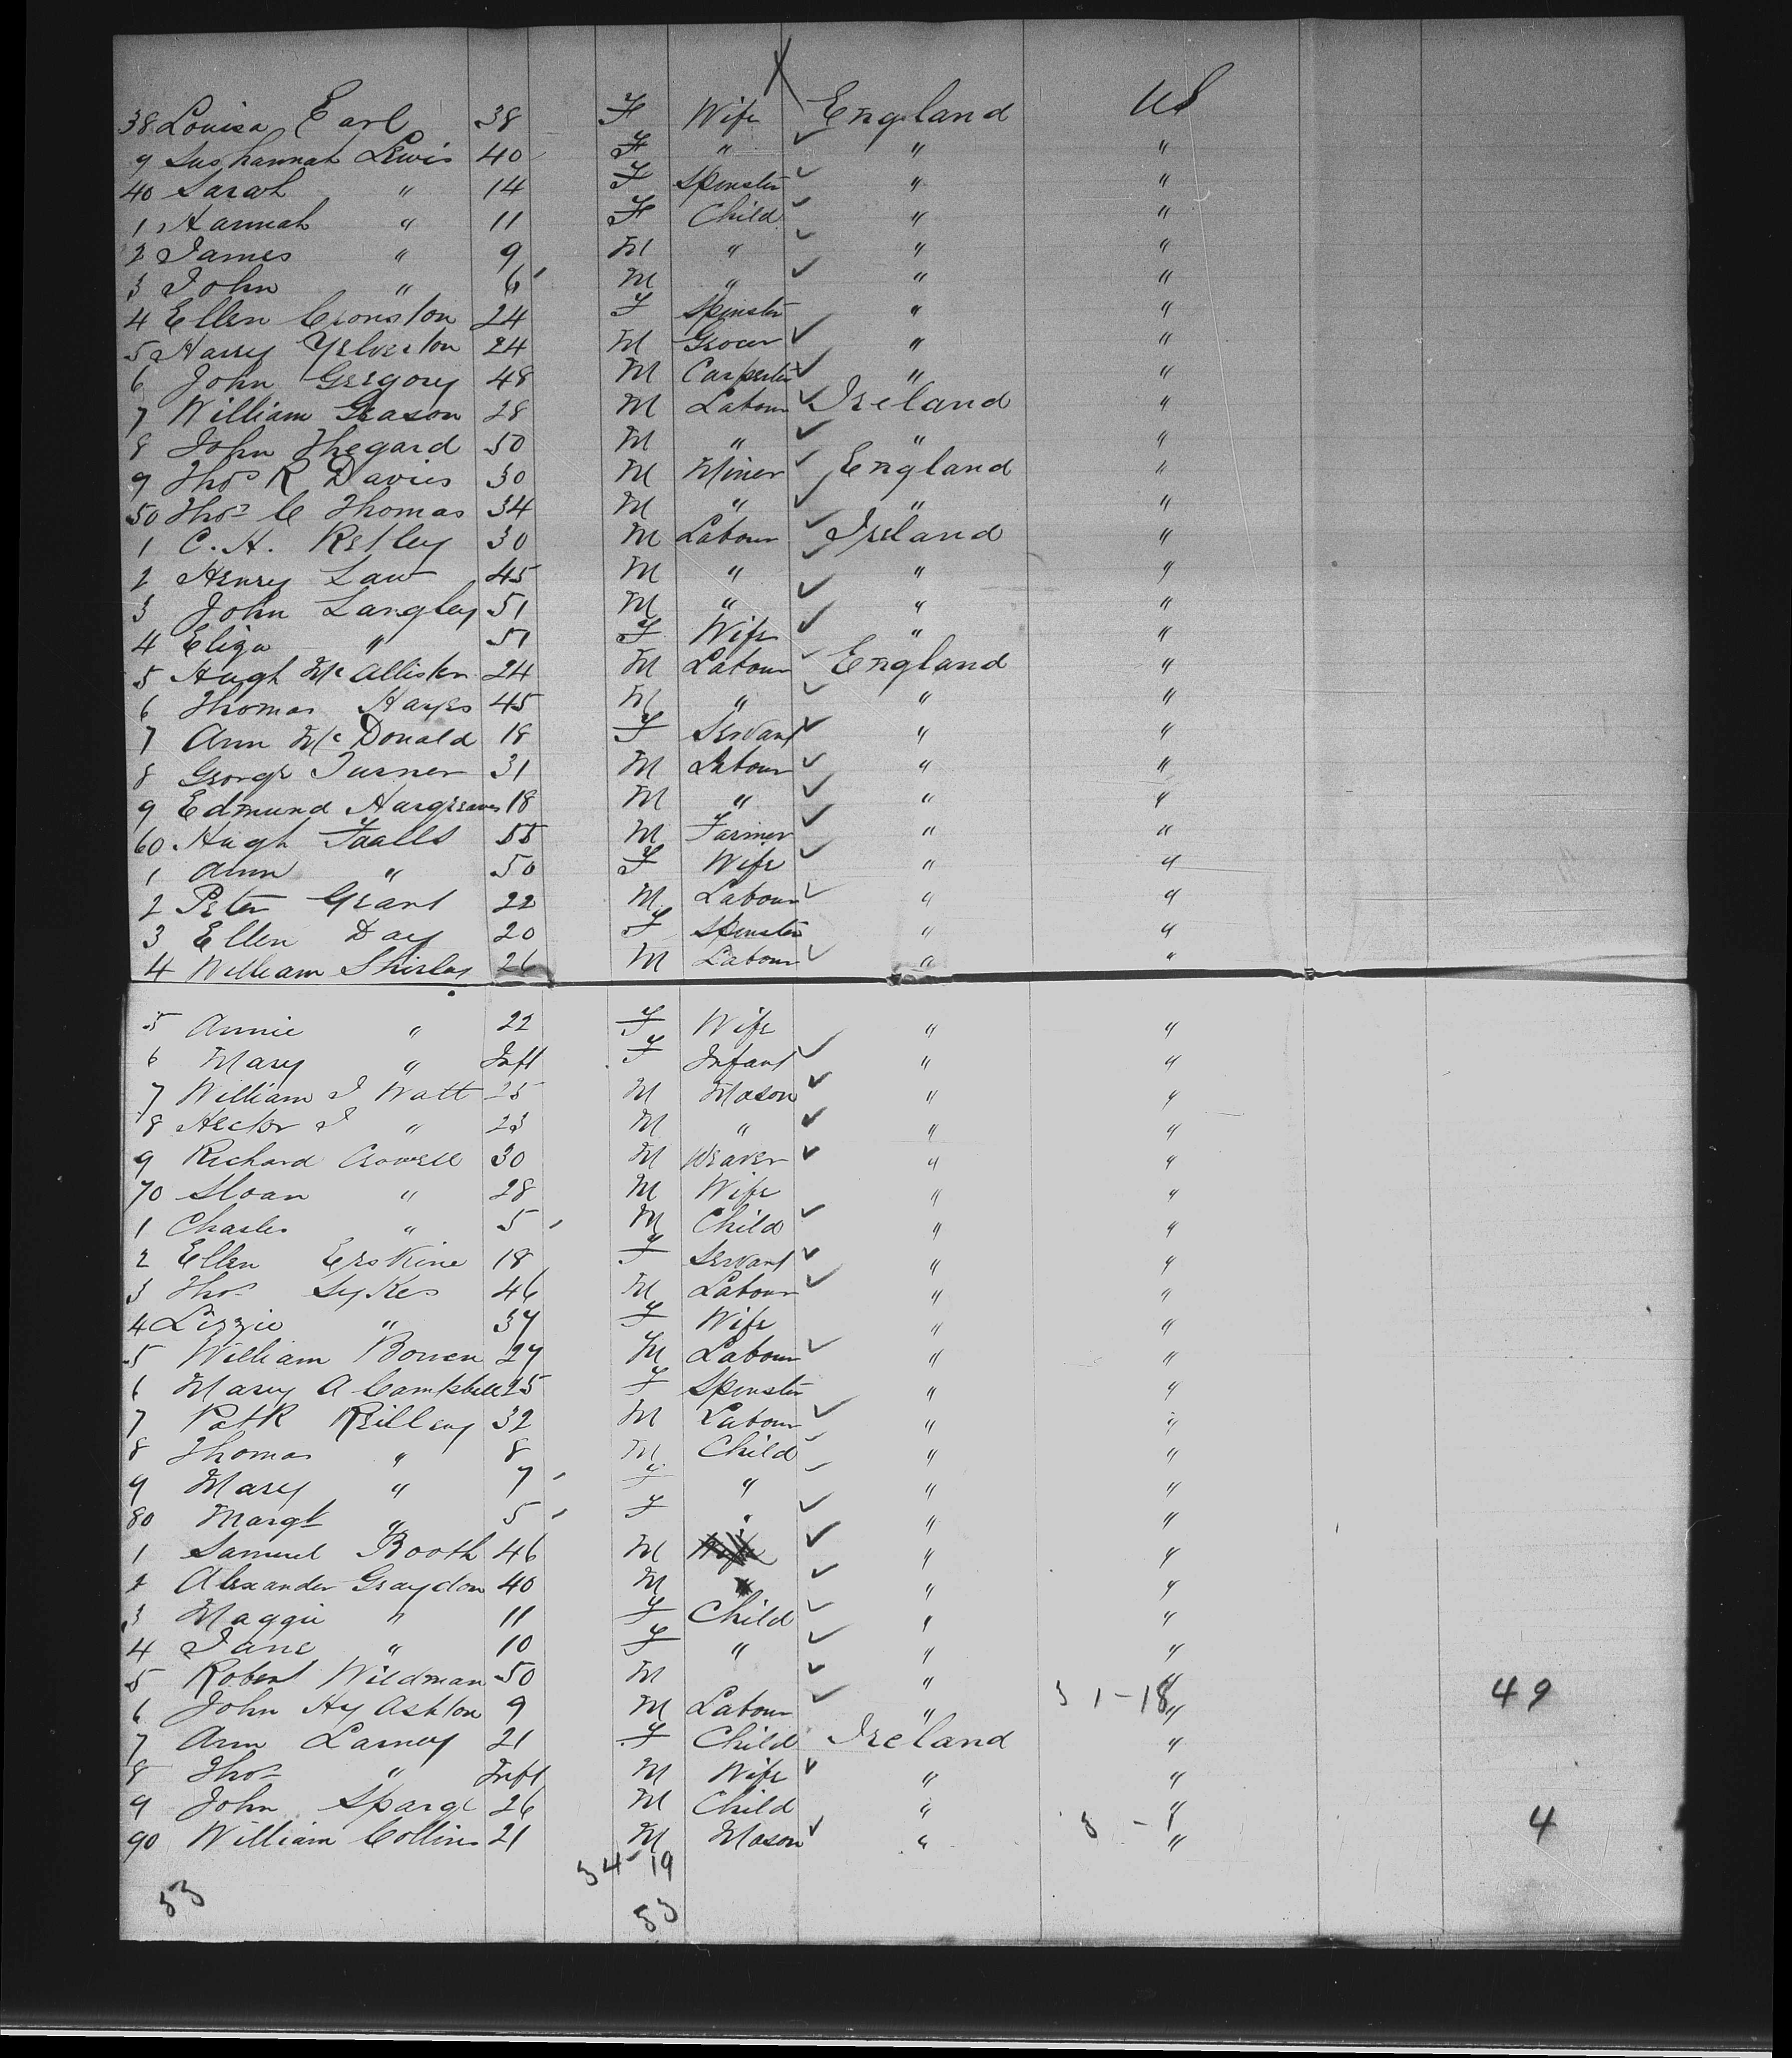 38 Louisa Earl 38 F Wife England US
9 Sushannah Lewis 40 F " " "
40 Sarah " 14 F Spinster " "
1 Hannah " 11 F Child " "
2 James " 9 M " " "
3 John " 6 M " " "
4 Ellen Cronston 24 F Spinster " "
5 Harry Yelverton 24 M Grocer " "
6 John Gregory 48 M Carpenter " "
7 William Grason 28 M Labour Ireland "
8 John Thegard 50 M " " "
9 Thos R Davies 30 M Miner England "
50 Thos C Thomas 34 M " " "
1 C. H. Kelley 30 M Labour Ireland "
2 Henry Law 45 M " " "
3 John Langley 51 M " " "
4 Eliza " 51 F Wife " "
5 Hugh McAllister 24 M Labour England "
6 Thomas Hayes 45 M " " "
7 Ann McDonald 18 F Servant " "
8 George Turner 31 M Labour " "
9 Edmund Hargreaves 18 M " " "
60 Hugh Faalls 55 M Farmer " "
1 Ann " 50 F Wife " "
2 Peter Grant 22 M Labour " "
3 Ellen Day 20 F Spinster " "
4 William Shirley 26 M Labour " "
5 Annie " 22 F Wife " "
6 Mary " Inft F Infant " "
7 William J Watt 25 M Mason " "
8 Hector J " 23 M " " "
9 Richard Crowell 30 M Weaver " "
70 Sloan " 28 M Wife " "
1 Charles " 5 M Child " "
2 Ellen Erskine 18 F Servant " "
3 Thos Sykes 46 M Labour " "
4 Lizzie " 37 F Wife " "
5 William Bowen 27 M Labour " "
6 Mary A Campbell 25 F Spinster " "
7 Patk Reilley 32 M Labour " "
8 Thomas " 8 M Child " "
9 Mary " 7 F " " "
80 Margt " 5 F " " "
1 Samuel Booth 46 M " "
2 Alexander Graydon 40 M " "
3 Maggie " 11 F Child " "
4 Jane " 10 F " " "
5 Robert Wildman 50 M " "
6 John Hy Ashton 9 M Labour " 31-18 " 49
7 Ann Larney 21 F Child Ireland "
8 Thos " Inft M Wife " "
9 John Sparge 26 M Child " "
90 William Collins 21 M Mason " 3-1 " 4
34 19
53 53